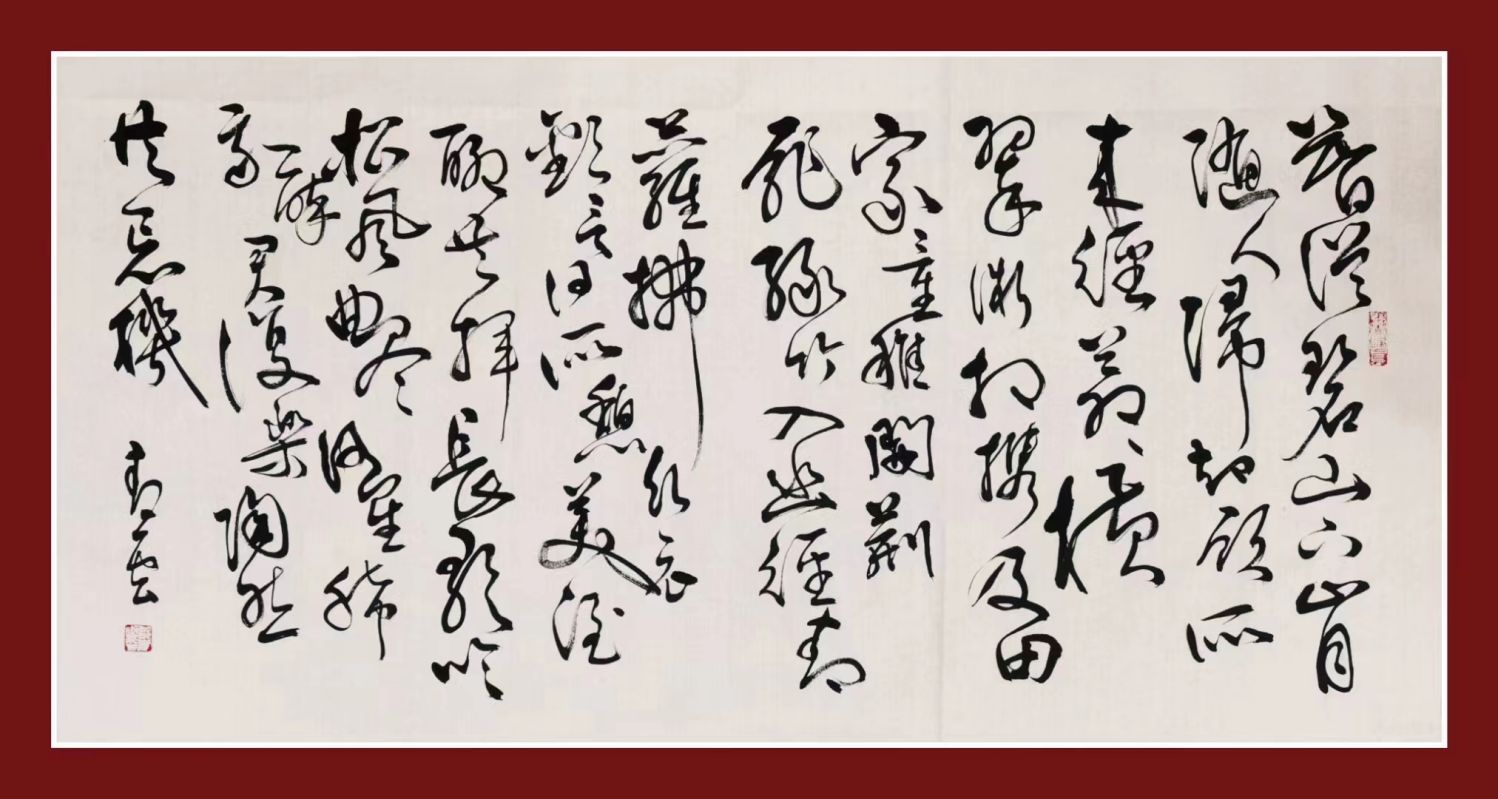 暮從碧山下山月
隨人歸却顧所
来徑蒼々橫
翠微相攜及田
家童稚開荊
扉綠竹入幽徑青
蘿拂行衣
歡言得所憩美酒
聊共揮長歌吟
松風曲盡河星稀
我醉君復樂陶然
共忘機